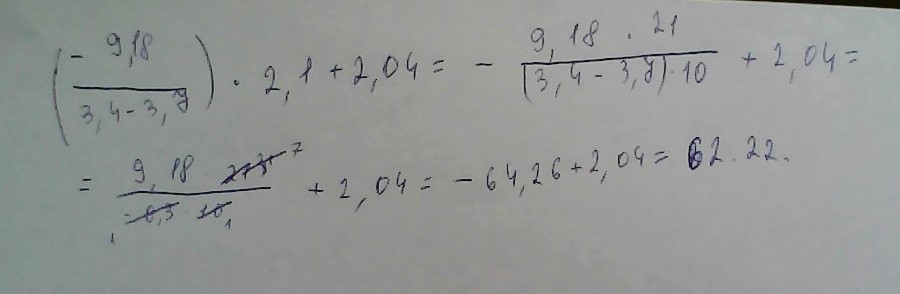 (- 9,18 / 3,4-3,7) · 2,1 + 2,04 = - 9,18 · 21 / (3,4-3,7)·10 + 2,04 =
= 9,18 21 7 / -0,3 · 10 1 1 + 2,04 = -64,26 + 2,04 = 62.22.